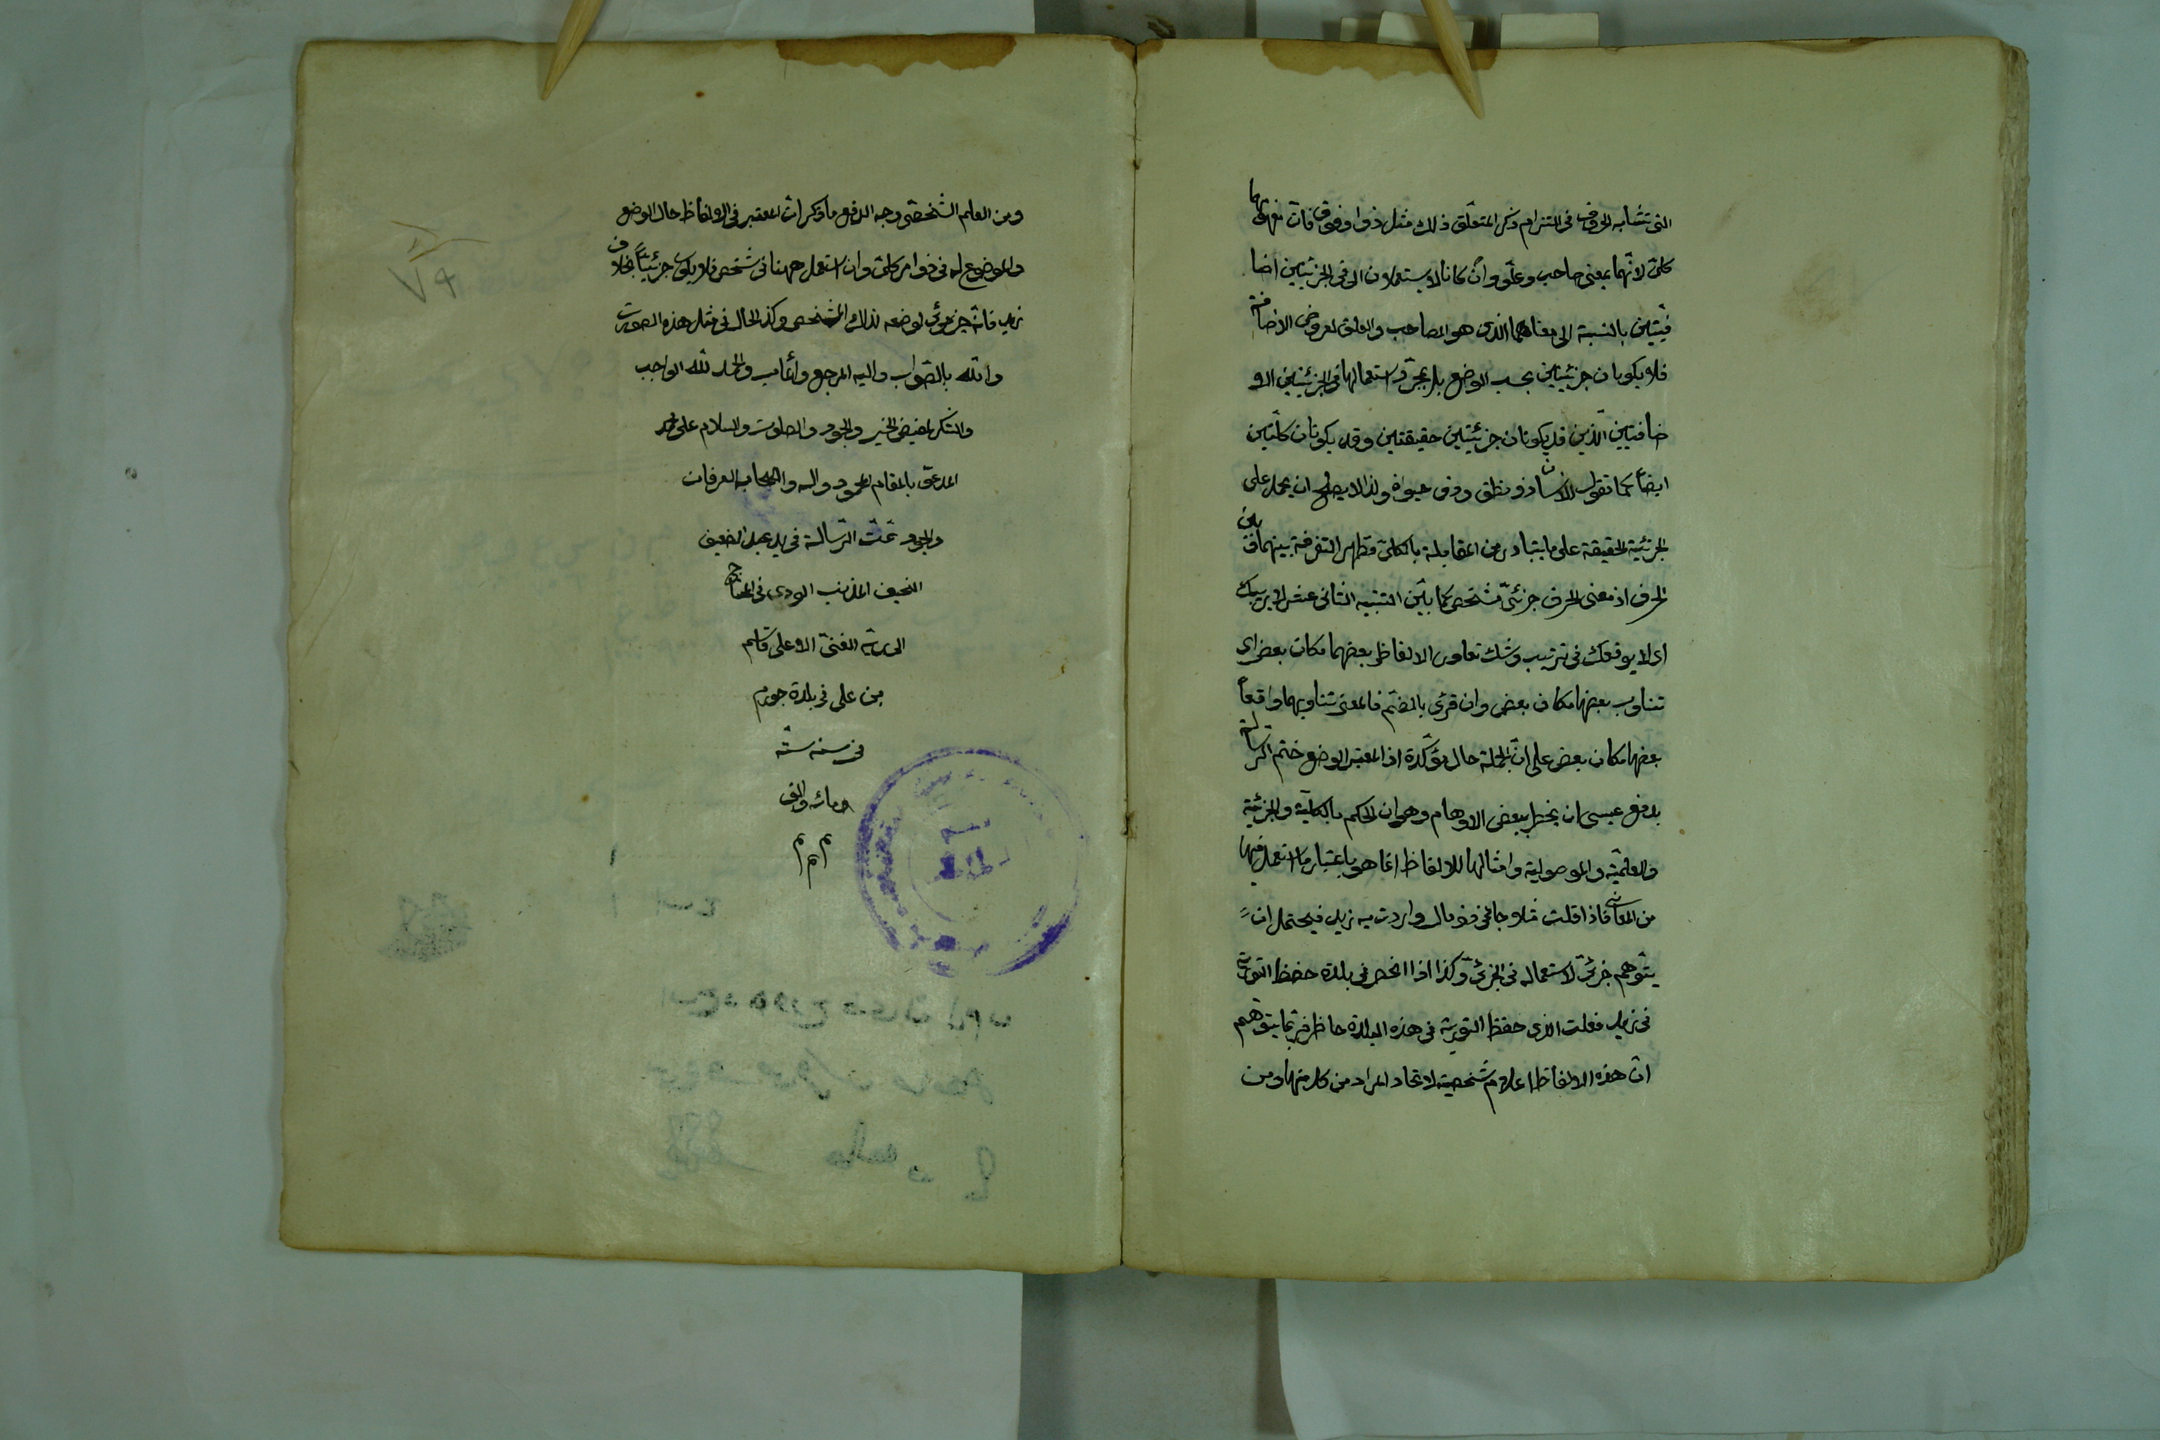 التى تشابه الحروف فى التزام ذكر المتعلق ذلك مثل ذو وفوق فان مفهومهما
كلى لانهما بمعنى صاحب وعلو وان كانا لا يستعملان الا فى الجزئيين اضا
فيتين بالنسبة الى معناهما الذى هو المصاحب والعلو لعروض الاضافة
فلا يكونان جزئيتين بحسب الوضع بل بمجرد استعمالهما فى الجزئيتين الا
ضافتيين الذين قد يكونان جزئيتين حقيقتين وقد يكونان كليتين
ايضاً كما تقول الانسان ذو نطق وذو حيواة ولذا لا يصلح ان يحمل على
الجزئية الحقيقة على ما يتبادر من المقابلة بالكلى فظهر التفرقة بينهما وبين
الحرف اذ معنى الحرف جزئى مشخص كما بين التنبيه الثانى عشر لا يريبك
اى لا يوقعك فى ترتيب وشك تعاور الالفاظ بعضهما مكان بعض اى
تناوب بعضها مكان بعض وان قرئ بالضم فالمعنى تناوبهما واقعاً
بعضها مكان بعض على ان الجملة حال مؤكدة اذ المعتبر الوضع ختم الرسالة
بدفع عيسى ان يخطر ببعض الاوهام وهو ان الحكم بالكلية والجزئية
والعلمية والموصولية وامثالها للالفاظ انما هو باعتبار ما استعمل فيها
من المعانى فاذا قلت مثلا جاءنى ذو مال واردت به زيد فيحتمل ان
يتوهم جزئى لاستعماله فى الجزئى وكذا اذا انحصر فى بلدة حفظ التورية
فى زيد فقلت الذى حفظ التورية فى هذه البلدة حاظر فربما يتوهم
ان هذه الالفاظ اعلام شخصية لاتحاد المراد من كل منها ومن
ومن العلم الشخصى وجه الدفع ما ذكر ان المعتبر فى الالفاظ حال الوضع
والموضوع له فى ذو امر كلى وان استعمل ههنا فى شخص فلا يكون جزئيتاً بخلاف
زيد فانه جزئى لوضعه لذلك المشخص وكذ الحال فى مثل هذه الصورت
والله بالصواب واليه المرجع والمأب والحمد لله الواجب
والشكر لمفيض الخير والجود والصلوت والسلام على محمد
المدعو بالمقام المحمود واله واصحاب العرفان
والجود تمت الرسالة فى يد عبد الضعيف
النحيف المذنب الودى المحتاج
الى ربه الغنى الاعلى قاسم
بن على فى بلدة جورم
فى سنه سته
ومائه والف
م م م
٧٩